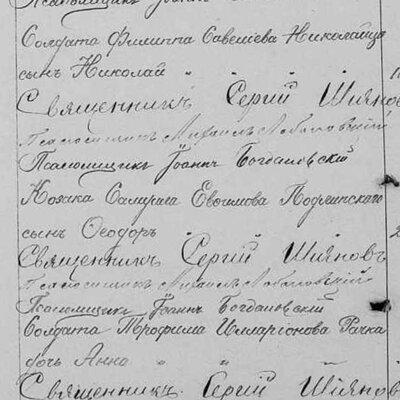 Псаломщикъ Іоаннъ
Солдата Филиппа Савелiева Николайца
сынъ Николай " " "
Священникъ Сергій Шіяновъ
Псаломщикъ Михаилъ Лобановскій
Псаломщикъ Іоаннъ Богдановскій
Козака Самуила Евѳимова
сынъ Ѳеодоръ " "
Священникъ Сергій Шіяновъ
Псаломщикъ Михаилъ Лобановскій
Псаломщикъ Іоаннъ Богдановскій
Солдата Трофима Илларіонова Рачка
дочь Анна " " "
Священникъ Сергій Шіяновъ